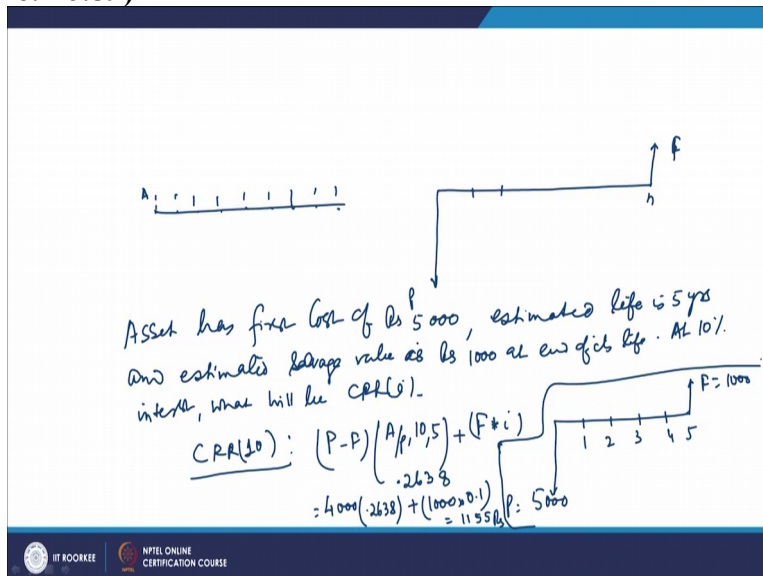 A
F
n
P
Asset has first Cost of Rs 5000, estimated life is 5 yrs
and estimated Salvage value is Rs 1000 at end of its life. At 10%
interest, what will be CRR(i).
CRR(10): (P-F)(A/P,10,5)+(F*i)
.2638
=4000(.2638)+(1000x0.1)
=1155Rs
F=1000
1 2 3 4 5
P: 5000
IIT ROORKEE
NPTEL ONLINE
CERTIFICATION COURSE